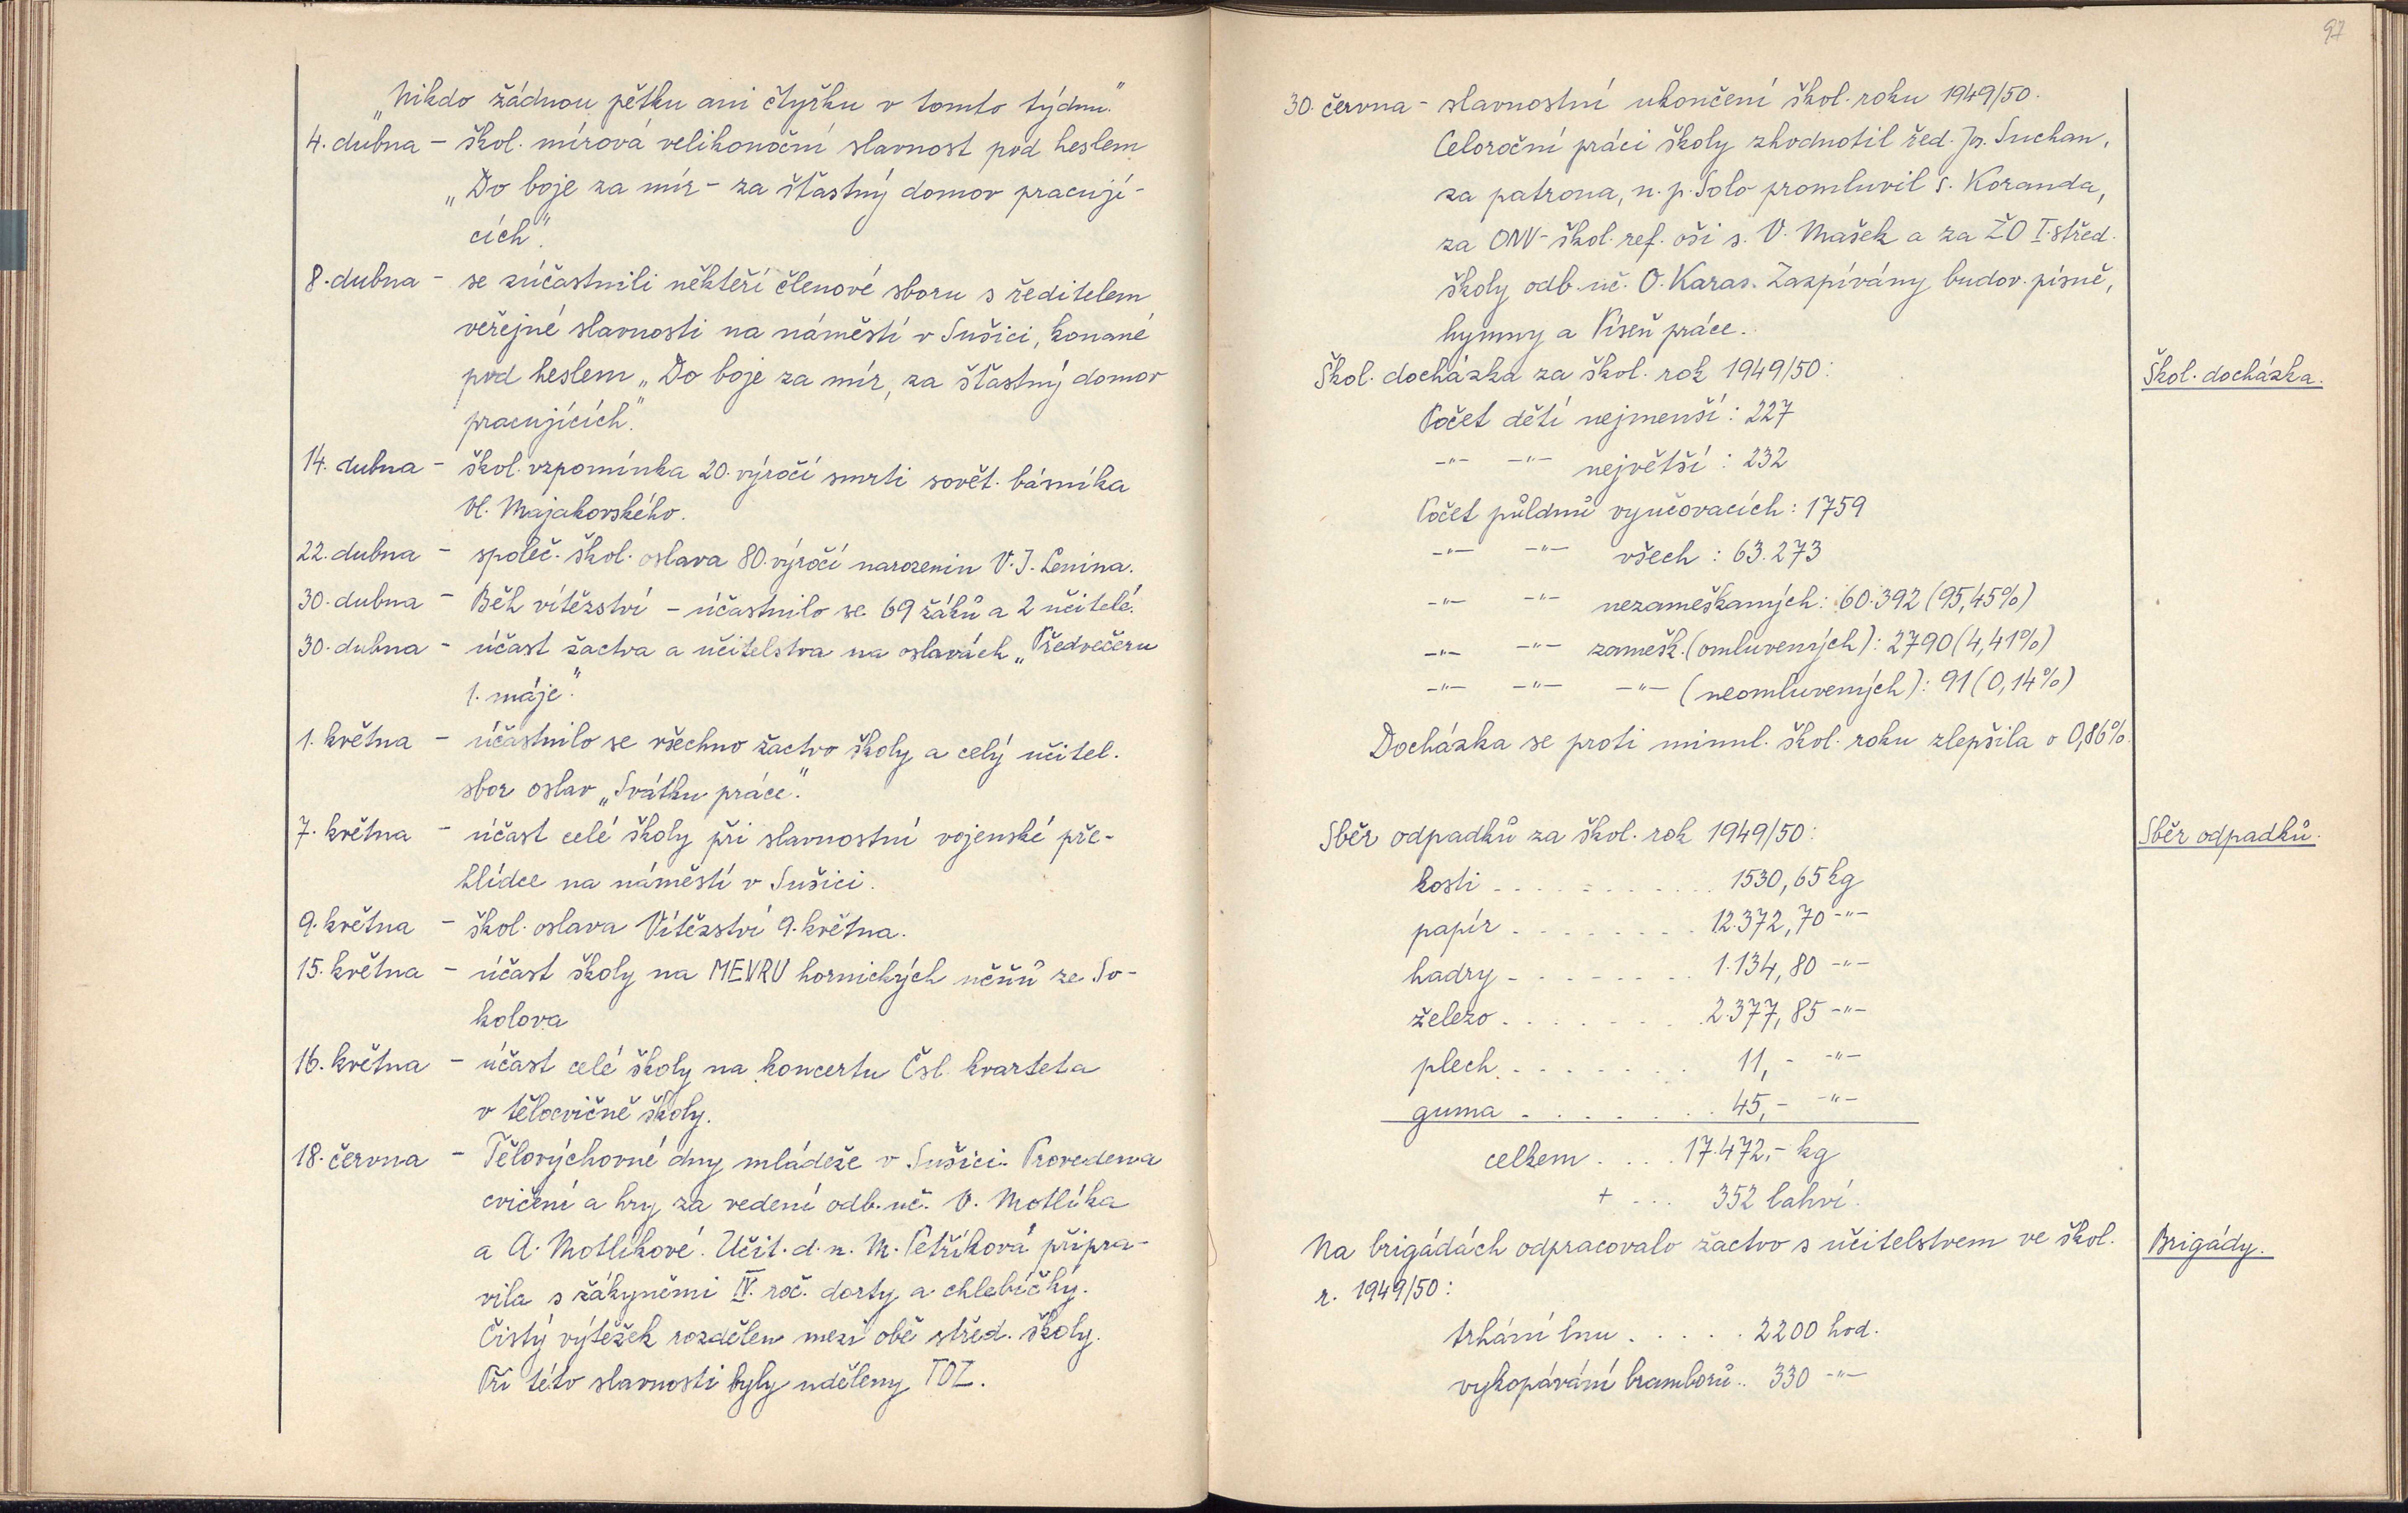 „Nikdo žádnou pětku ani čtyřku v tomto týdnu."
4. dubna – škol. mírová velikonoční slavnost pod heslem
„Do boje za mír – za šťastný domov pracují-
cích".
8. dubna – se zúčastnili někteří členové sboru s ředitelem
veřejné slavnosti na náměstí v Sušici, konané
pod heslem „Do boje za mír, za šťastný domov
pracujících".
14. dubna – škol. vzpomínka 20. výročí smrti sovět. básníka
Vl. Majakovského.
22. dubna – společ. škol. oslava 80. výročí narozenin V. J. Lenina.
30. dubna – Běh vítězství – účastnilo se 69 žáků a 2 učitelé.
30. dubna – účast žactva a učitelstva na oslavách „Předvečeru
1. máje".
1. května – účastnilo se všechno žactvo školy a celý učitel.
sbor oslav „Svátku práce".
7. května – účast celé školy při slavnostní vojenské pře-
hlídce na náměstí v Sušici.
9. května – škol. oslava Vítězství 9. května.
15. května – účast školy na MEVRU hornických učňů ze So-
kolova
16. května – účast celé školy na koncertu Čsl. kvarteta
v tělocvičně školy.
18. června – Tělovýchovné dny mládeže v Sušici. Provedena
cvičení a hry za vedení odb. uč. V. Motlíka
a A. Motlíkové. Učit. d. n. M. Petříková připra-
vila s žákyněmi IV. roč. dorty a chlebíčky.
Čistý výtěžek rozdělen mezi obě střed. školy.
Při této slavnosti byly uděleny TOZ.
97
30. června – slavnostní ukončení škol. roku 1949/50.
Celoroční práci školy zhodnotil řed. Js. Suchan,
za patrona, n. p. Solo promluvil s. Koranda,
za ONV – škol. ref. oši s. V. Mašek a za ŽO I. střed.
školy odb. uč. O. Karas. Zazpívány budov. písně,
hymny a Píseň práce.
Škol. docházka za škol. rok 1949/50:
Škol. docházka.
Počet dětí nejmenší: 227
–"– –"– největší: 232
Počet půldnů vyučovacích: 1759
–"– –"– všech: 63.273
–"– –"– nezameškaných: 60.392 (95,45%)
–"– –"– zamešk. (omluvených): 2790 (4,41%)
–"– –"– –"– (neomluvených): 91 (0,14%)
Docházka se proti minul. škol. roku zlepšila o 0,86%.
Sběr odpadků za škol. rok 1949/50:
Sběr odpadků.
kosti . . . . . . . . . . . 1530,65 kg
papír . . . . . . . . 12.372,70 –"–
hadry . . . . . . . . 1.134,80 –"–
železo . . . . . . . . 2.377,85 –"–
plech . . . . . . . . 11,– –"–
guma . . . . . . . 45,– –"–
celkem . . . . 17.472,– kg
+ . . . 352 lahví.
Na brigádách odpracovalo žactvo s učitelstvem ve škol.
Brigády.
r. 1949/50:
trhání lnu . . . . . 2200 hod.
vykopávání bramborů . . 330 –"–